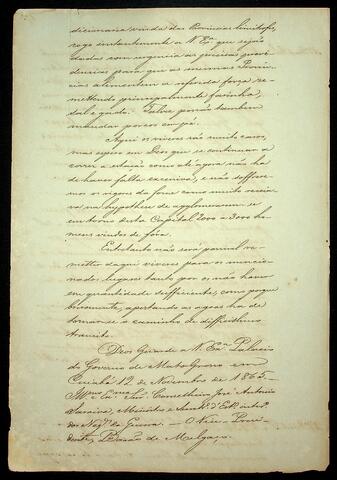 dicionaria vinda das Provincias limitrofes,
rogo instantemente a V. Exª que sejão
dadas com urgencia as precisas provi-
dencias para que as mesmas Provin-
cias alimentem a referida força re-
mettendo principalmente farinha,
sal e gado. Talvez possão tambem
mandar porcos em pé.
Aqui os viveres são muito caros,
mas espero em Deos que se continuar a
correr a estação como até agora não ha
de haver falta excessiva, e não soffrere-
mos os rigores da fome como muito receia-
va na hypothese de agglomerarem-se
em torno desta Capital 2000 a 3000 ho-
mens vindos de fora.
Entretanto não será possivel re-
metter daqui viveres para os mencio-
nados lugares tanto por os não haver
em quantidade sufficiente, como porque
brevemente, apertando as agoas ha de
tornar-se o caminho de difficilimo
transito.
Deos Guarde a V. Exª Palacio
do Governo de Mato Grosso em
Cuiabá 12 de Novembro de 1865 –
Illmo e Exmo Snr. Conselheiro José Antonio
Saraiva, Ministro e Secretº d'Estº inter.
dos Negos da Guerra. — O Vice-Presi-
dente, Barão de Melgaço.